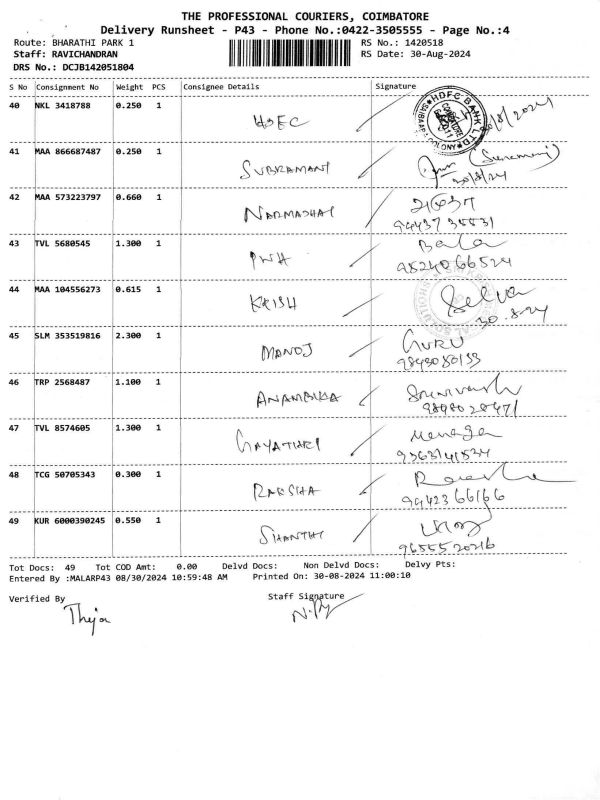 THE PROFESSIONAL COURIERS, COIMBATORE
Delivery Runsheet - P43 - Phone No.:0422-3505555 - Page No.:4
Route: BHARATHI PARK 1 RS No.: 1420518
Staff: RAVICHANDRAN RS Date: 30-Aug-2024
DRS No.: DCJB142051804
S No Consignment No Weight PCS Consignee Details Signature
40 NKL 3418788 0.250 1 HDFC HDFC BANK LTD
41 MAA 866687487 0.250 1 SUBRAMANI
42 MAA 573223797 0.660 1
43 TVL 5680545 1.300 1 Bala
44 MAA 104556273 0.615 1 KRISH Selva
30.8.24
45 SLM 353519816 2.300 1 MANOJ GURU
46 TRP 2568487 1.100 1 ANAMBIKA
47 TVL 8574605 1.300 1 GAYATHRI
48 TCG 50705343 0.300 1 RAKSHA
9942366166
49 KUR 6000390245 0.550 1 SHANTHI
9655520216
Tot Docs: 49 Tot COD Amt: 0.00 Delvd Docs: Non Delvd Docs: Delvy Pts:
Entered By :MALARP43 08/30/2024 10:59:48 AM Printed On: 30-08-2024 11:00:10
Verified By Staff Signature
Theja